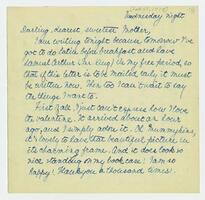 Wednesday night
Darling, dearest sweetest Mother,
I am writing tonight because tomorrow I've
got to do Latin before breakfast and have
Samuel Arthur (Mr. King) in my free period, so
that if this letter is to be mailed early it must
be written now. Then too I can't wait to say
the things I want to.
First I just can't express how I love
the valentine. It arrived about an hour
ago, and I simply adore it. Oh Mummykins,
it's lovely to have that beautiful picture in
its charming frame. And it does look so
nice standing on my bookcase! I am so
happy! Thank you a thousand times!